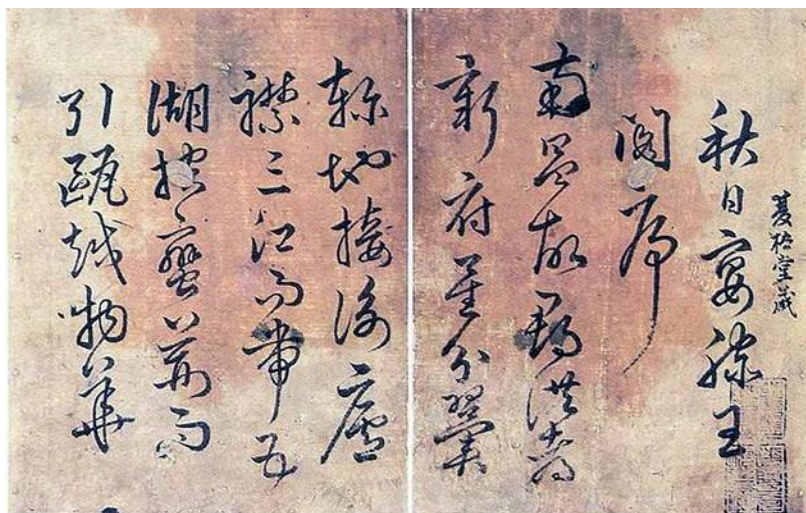 堂藏
秋日宴滕王
閣序
南昌故郡洪都
新府星分翼
軫地接衡廬
襟三江而帶五
湖控蠻荊而
引甌越物華